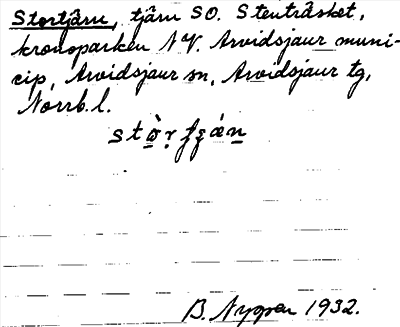 Stortjärn, tjärn SO. Stenträsket,
kronoparken N V. Arvidsjaur muni-
cip, Arvidsjaur sn, Arvidsjaur tg,
Norrb. l.
B. Nygren 1932.